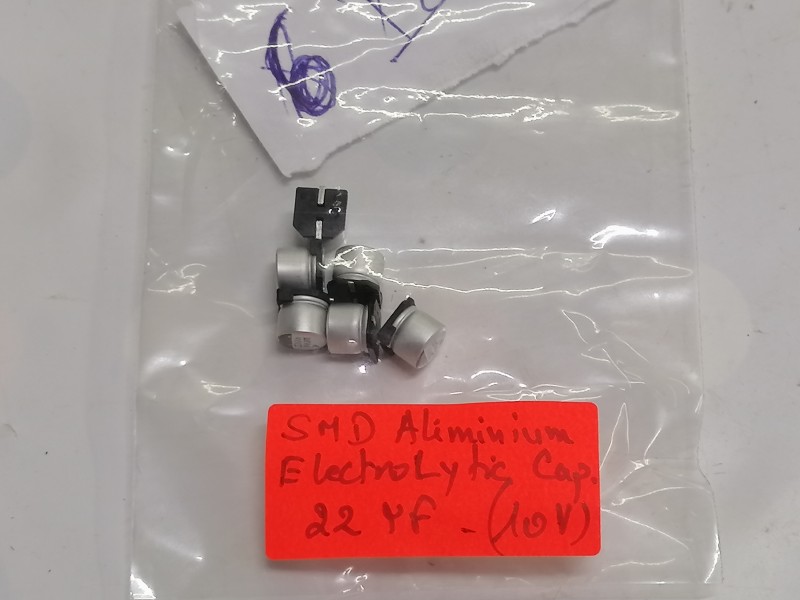 6
SMD Aliminium
Electrolytic Cap.
22 µF - (10V)